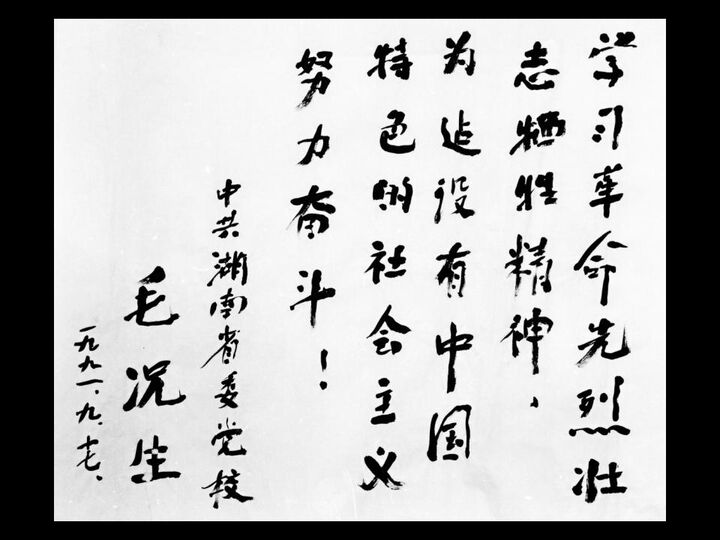 学习革命先烈壮
志牺牲精神、
为建设有中国
特色的社会主义
努力奋斗！
中共湖南省委党校
毛况生
一九九一、九、十七、